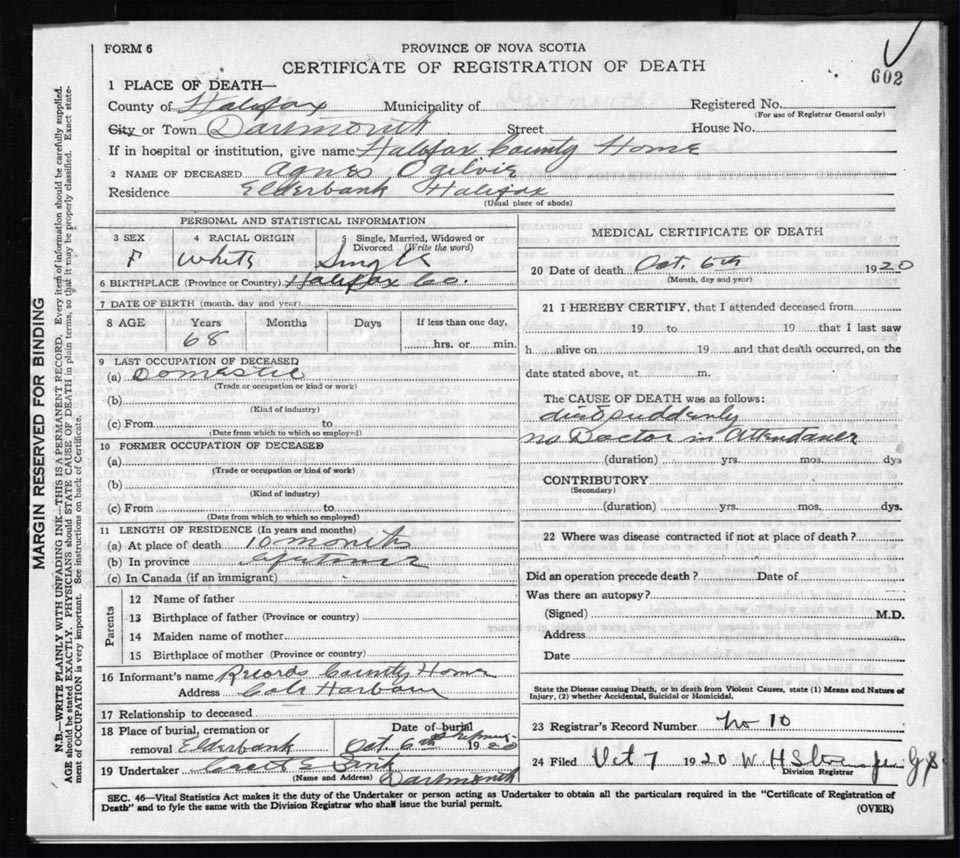 FORM 6
PROVINCE OF NOVA SCOTIA
CERTIFICATE OF REGISTRATION OF DEATH
602
1 PLACE OF DEATH—
County of Halifax Municipality of Registered No.
(For use of Registrar General only)
City or Town Dartmouth Street House No.
If in hospital or institution, give name Halifax County Home
2 NAME OF DECEASED Agnes Ogilvie
Residence Elderbank Halifax
(Usual place of abode)
PERSONAL AND STATISTICAL INFORMATION
3 SEX
F
4 RACIAL ORIGIN
White
5 Single, Married, Widowed or Divorced (Write the word)
Single
6 BIRTHPLACE (Province or Country) Halifax Co.
7 DATE OF BIRTH (month, day and year)
8 AGE Years Months Days If less than one day,
68 hrs. or min.
9 LAST OCCUPATION OF DECEASED
(a) Domestic
(Trade or occupation or kind of work)
(b)
(Kind of industry)
(c) From to
(Date from which to which so employed)
10 FORMER OCCUPATION OF DECEASED
(a)
(Trade or occupation or kind of work)
(b)
(Kind of industry)
(c) From to
(Date from which to which so employed)
11 LENGTH OF RESIDENCE (In years and months)
(a) At place of death 10 months
(b) In province
(c) In Canada (if an immigrant)
Parents
12 Name of father
13 Birthplace of father (Province or country)
14 Maiden name of mother
15 Birthplace of mother (Province or country)
16 Informant's name Records County Home
Address Cole Harbour
17 Relationship to deceased
18 Place of burial, cremation or removal Elderbank
Date of burial
Oct. 6th 1920
19 Undertaker
(Name and Address) Dartmouth
MEDICAL CERTIFICATE OF DEATH
20 Date of death Oct 6th 1920
(Month, day and year)
21 I HEREBY CERTIFY, that I attended deceased from
19 to 19 that I last saw
h alive on 19 and that death occurred, on the
date stated above, at m.
The CAUSE OF DEATH was as follows:
died suddenly
no Doctor in Attendance
(duration) yrs. mos. dys
CONTRIBUTORY
(Secondary)
(duration) yrs. mos. dys.
22 Where was disease contracted if not at place of death?
Did an operation precede death? Date of
Was there an autopsy?
(Signed) M.D.
Address
Date
State the Disease causing Death, or in death from Violent Causes, state (1) Means and Nature of
Injury, (2) whether Accidental, Suicidal or Homicidal.
23 Registrar's Record Number No 10
24 Filed Oct 7 1920 W H
Division Registrar
SEC. 46—Vital Statistics Act makes it the duty of the Undertaker or person acting as Undertaker to obtain all the particulars required in the "Certificate of Registration of
Death" and to fyle the same with the Division Registrar who shall issue the burial permit.
(OVER)
MARGIN RESERVED FOR BINDING
N.B.—WRITE PLAINLY WITH UNFADING INK—THIS IS A PERMANENT RECORD. Every item of information should be carefully supplied.
AGE should be stated EXACTLY. PHYSICIANS should STATE CAUSE OF DEATH in plain terms, so that it may be properly classified. Exact state-
ment of OCCUPATION is very important. See instructions on back of Certificate.